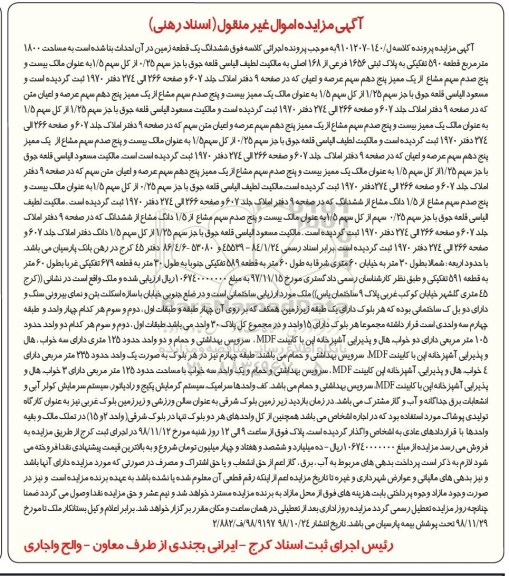 آگهی مزایده اموال غیر منقول ( اسناد رهنی)
آگهی مزایده پرونده کلاسه ل/۹۱۰۱۲۰۷-۱۴۰ به موجب پرونده اجرائی کلاسه فوق ششدانگ یک قطعه زمین در آن احداث بنا شده است به مساحت ۱۸۰۰
متر مربع قطعه ۵۹۰ تفکیکی به پلاک ثبتی ۱۶۵۶ فرعی از ۱۶۸ اصلی به مالکیت لطیف الیاسی قلعه جوق با جز سهم ۰/۲۵ از کل سهم ۱/۵ به عنوان مالک بیست و
پنج صدم سهم مشاع از یک ممیز پنج دهم سهم عرصه و اعیان که در صفحه ۹ دفتر املاک جلد ۶۰۷ و صفحه ۲۶۶ الی ۲۷۴ دفتر ۱۹۷۰ ثبت گردیده است و
مسعود الیاسی قلعه جوق با جز سهم ۱/۲۵ از کل سهم ۱/۵ به عنوان مالک یک ممیز بیست و پنج صدم سهم مشاع از یک ممیز پنج دهم سهم عرصه و اعیان متن سهم
که در صفحه ۹ دفتر املاک جلد ۶۰۷ و صفحه ۲۶۶ الی ۲۷۴ دفتر ۱۹۷۰ ثبت گردیده است و مالکیت مسعود الیاسی قلعه جوق با جز سهم ۱/۲۵ از کل سهم ۱/۵
به عنوان مالک یک ممیز بیست و پنج صدم سهم مشاع از یک ممیز پنج دهم سهم عرصه و اعیان متن سهم که در صفحه ۹ دفتر املاک جلد ۶۰۷ و صفحه ۲۶۶ الی
۲۷۴ دفتر ۱۹۷۰ ثبت گردیده است و مالکیت لطیف الیاسی قلعه جوق با جز سهم ۰/۲۵ از کل سهم ۱/۵ به عنوان مالک بیست و پنج صدم سهم مشاع از یک ممیز
پنج دهم سهم عرصه و اعیان که در صفحه ۹ دفتر املاک جلد ۶۰۷ و صفحه ۲۶۶ الی ۲۷۴ دفتر ۱۹۷۰ ثبت گردیده است است. مالکیت مسعود الیاسی قلعه جوق
با جز سهم ۱/۲۵ از کل سهم ۱/۵ به عنوان مالک یک ممیز بیست و پنج صدم سهم مشاع از یک ممیز پنج دهم سهم عرصه و اعیان متن سهم که در صفحه ۹ دفتر
املاک جلد ۶۰۷ و صفحه ۲۶۶ الی ۲۷۴ دفتر ۱۹۷۰ ثبت گردیده است. مالکیت لطیف الیاسی قلعه جوق با جز سهم ۰/۲۵ از کل سهم ۱/۵ به عنوان مالک بیست و
پنج صدم سهم مشاع از ۱/۵ دانگ مشاع از ششدانگ که در صفحه ۹ دفتر املاک جلد ۶۰۷ و صفحه ۲۶۶ الی ۲۷۴ دفتر ۱۹۷۰ ثبت گردیده است . مالکیت لطیف
الیاسی قلعه جوق با جز سهم ۰/۲۵ سهم از کل سهم ۱/۵ به عنوان مالک بیست و پنج صدم سهم مشاع از ۱/۵ دانگ مشاع از ششدانگ که در صفحه ۹ دفتر املاک
جلد ۶۰۷ و صفحه ۲۶۶ الی ۲۷۴ دفتر ۱۹۷۰ ثبت گردیده است . مالکیت مسعود الیاسی قلعه جوق با جز سهم ۱/۲۵ از کل سهم ۱/۵ دانگ دفتر املاک جلد ۶۰۷ و
صفحه ۲۶۶ الی ۲۷۴ دفتر ۱۹۷۰ ثبت گردیده است .برابر اسناد رسمی ۸۴/۱/۲۴ - ۴۵۵۳۹ و ۵۳۰۸۰ - ۸۶/۴/۶ دفتر ۴۵ کرج در رهن بانک پارسیان می باشد.
با حدود اربعه : شمالا بطول ۳۰ متر به خیابان ۶۰ متری شرقا بطول ۶۰ متر به قطعه ۵۸۹ تفکیکی جنوبا به طول ۳۰ متر به قطعه ۶۷۹ تفکیکی غربا بطول ۶۰ متر
به قطعه ۵۹۱ تفکیکی و طبق نظر کارشناسان رسمی دادگستری مورخ ۹۷/۱۱/۱۵ به مبلغ ۱۰۶۷۴۰۰۰۰۰۰۰ ریال ارزیابی شده و ملک واقع است در نشانی ((کرج
۴۵ متری گلشهر خیابان کوکب غربی پلاک ۹ ساختمان یاس)) ملک مورد ارزیابی ساختمانی است و در ضلع جنوبی خیابان با سازه اسکلت بتن و نمای بیرونی سنگ و
دارای دو بلوک ساختمانی بوده که هر بلوک دارای یک طبقه زیرزمین همکف که بر روی آن چهار طبقه و طبقات اول ، دوم و سوم هر کدام چهار واحد و طبقه
چهارم سه واحدی است قرار داشته مجموعا هر بلوک دارای ۱۵ واحد و در مجموع کل پلاک ۳۰ واحد می باشد.طبقات اول ، دوم و سوم هر کدام دو واحد حدود
۱۰۵ متر مربعی دارای دو خواب، هال و پذیرایی آشپزخانه اپن با کابینت MDF ، سرویس بهداشتی و حمام و دو واحد حدود ۱۲۵ متری دارای سه خواب ، هال
پذیرایی آشپزخانه اپن با کابینت MDF، سرویس بهداشتی و حمام می باشند. طبقه چهارم نیز در هر بلوک به صورت یک واحد حدود ۲۳۵ متر مربعی دارای
۴ خواب، هال و پذیرایی، آشپزخانه اپن کابینت MDF، سرویس بهداشتی و حمام و یک واحد سه خواب با مساحت حدود ۱۲۵ متر مربعی دارای ۳ خواب، هال و
پذیرایی آشپزخانه اپن با کابینت MDF سرویس بهداشتی و حمام می باشد. کف واحدها سرامیک، سیستم گرمایش پکیج و رادیاتور، سیستم سرمایش کولر آبی و
انشعابات برق جداگانه و آب و گاز مشترک می باشد. در زمان بازدید زیر زمین بلوک شرقی به عنوان سالن ورزشی و زیرزمین بلوک غربی نیز به عنوان کارگاه
تولیدی پوشاک مورد استفاده بود که در اجاره اشخاص می باشد همچنین از کل واحدهای هر دو بلوک تنها در بلوک شرقی( واحد ۲ و ۱۵) در تملک مالک و بقیه
واحدها با قراردادهای عادی به اشخاص واگذار گردیده است. پلاک فوق از ساعت ۹ الی ۱۲ روز شنبه مورخ ۹۸/۱۱/۱۲ در اجرای ثبت کرج از طریق مزایده به
فروش می رسد مزایده از مبلغ ۱۰۶۷۴۰۰۰۰۰۰۰ ریال - ده میلیارد و ششصد و هفتاد و چهار میلیون تومان شروع و به بالاترین قیمت پیشنهادی نقدا فروخته می
شود لازم به ذکر است پرداخت بدهی های مربوط به آب ، برق ، گاز اعم از حق انشعاب و یا حق اشتراک و مصرف در صورتی که مورد مزایده دارای آنها باشد
و نیز بدهی های مالیاتی و عوارض شهرداری و غیره تا تاریخ مزایده اعم از اینکه رقم قطعی آن معلوم شده یا نشده باشد به عهده برنده مزایده است و نیز در
صورت وجود مازاد وجوه پرداختی بابت هزینه های فوق از محل مازاد به برنده مزایده مسترد خواهد شد و نیم عشر و حق مزایده نقدا وصول می گردد ضمنا
چنانچه روز مزایده تعطیل رسمی گردد مزایده روز اداری بعد از تعطیلی در همان ساعت و مکان مقرر برگزار خواهد شد. برابر اعلام وکیل بستانکار ملک تا مورخ
۹۸/۱۱/۲۹ تحت پوشش بیمه پارسیان می باشد. تاریخ انتشار ۹۸/۱۰/۲۴ ۹۸/۹۱۹۷/ف ۲/۸۸۲
رئیس اجرای ثبت اسناد کرج -ایرانی بجندی از طرف معاون - والح واجاری